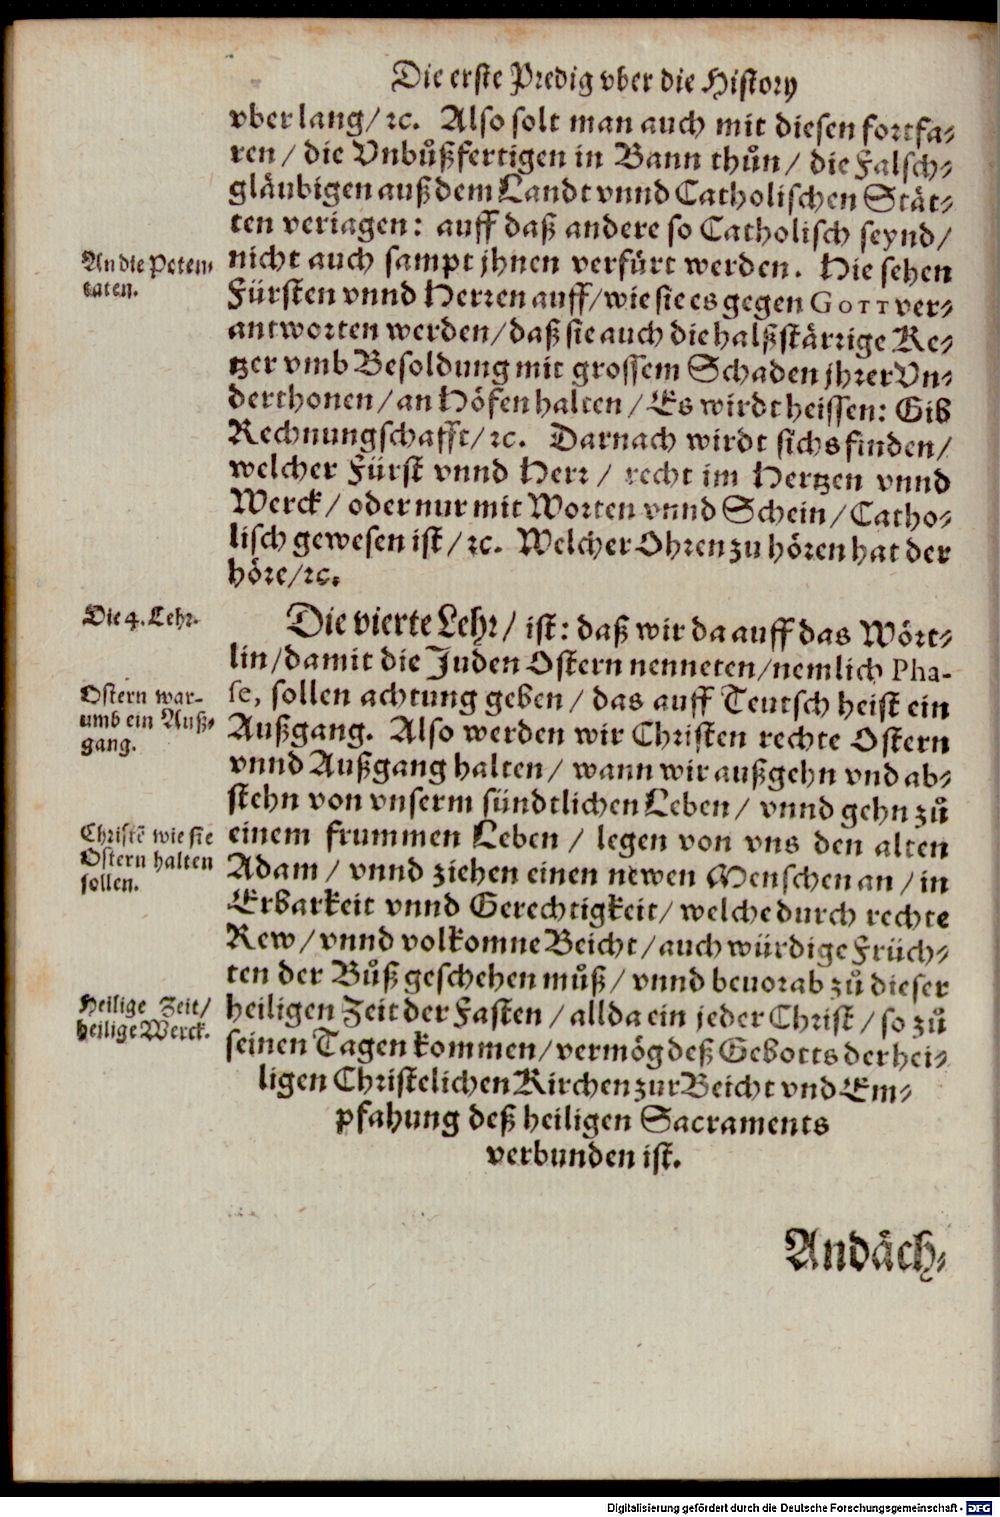 Die erste Predig vber die History
vber lang/ ꝛc. Also solt man auch mit diesen fortfa-
ren / die Vnbůßfertigen in Bann thůn / die Falsch-
gläubigen auß dem Landt vnnd Catholischen Stät-
ten veriagen: auff daß andere so Catholisch seynd/
nicht auch sampt jhnen verfürt werden. Hie sehen
Fürsten vnnd Herren auff/ wie sie es gegen GOTT ver-
antworten werden/ daß sie auch die halßstärrige Ke-
tzer vmb Besoldung mit grossem Schaden jhrer Vn-
derthonen/ an Höfen halten / Es wirdt heissen: Gib
Rechnungschafft/ ꝛc. Darnach wirdt sichs finden/
welcher Fürst vnnd Herr / recht im Hertzen vnnd
Werck / oder nur mit Worten vnnd Schein / Catho-
lisch gewesen ist / ꝛc. Welcher Ohren zu hören hat der
höre/ꝛc.
An die Poten-
taten.
Die 4. Lehr.
Die vierte Lehr / ist: daß wir da auff das Wört-
lin/ damit die Juden Ostern nenneten/ nemlich Pha-
se, sollen achtung geben / das auff Teutsch heist ein
Außgang. Also werden wir Christen rechte Ostern
vnnd Außgang halten / wann wir außgehn vnd ab-
stehn von vnserm sündtlichen Leben / vnnd gehn zů
einem frummen Leben / legen von vns den alten
Adam / vnnd ziehen einen newen Menschen an / in
Erbarkeit vnnd Gerechtigkeit/ welche durch rechte
Rew / vnnd volkomne Beicht / auch würdige Früch-
ten der Bůß geschehen můß / vnnd beuorab zů dieser
heiligen Zeit der Fasten / allda ein jeder Christ / so zů
seinen Tagen kommen/ vermög deß Gebotts der hei-
ligen Christelichen Kirchen zur Beicht vnd Em-
pfahung deß heiligen Sacraments
verbunden ist.
Ostern war-
umb ein Auß-
gang.
Christẽ wie sie
Ostern halten
sollen.
Heilige Zeit/
heilige Werck.
Andäch-
Digitalisierung gefördert durch die Deutsche Forschungsgemeinschaft - DFG